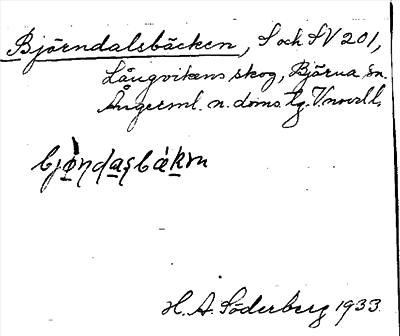 Björndalsbäcken, S och SV 201,
Långvikens skog, Bjärna sn.
Ångerml. n. doms. lg. Vnorrl l.
H. A. Söderberg 1933.